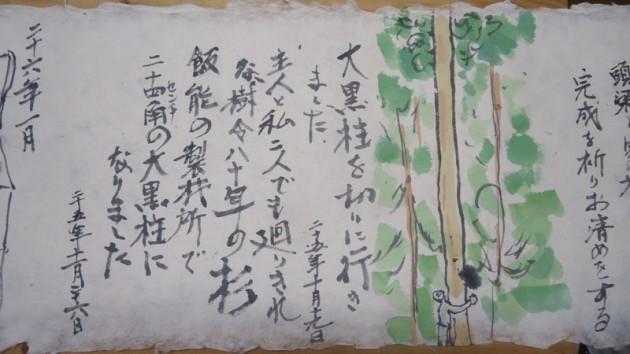 完成を祈りお清めをする
大黒柱を切りに行き
ました
二十五年十月
主人と私二人でも廻りきれ
ぬ樹令八十年の杉
飯能の製材所で
二十四角の大黒柱に
センチ
なりました
二十五年十一月二十六日
二十六年一月